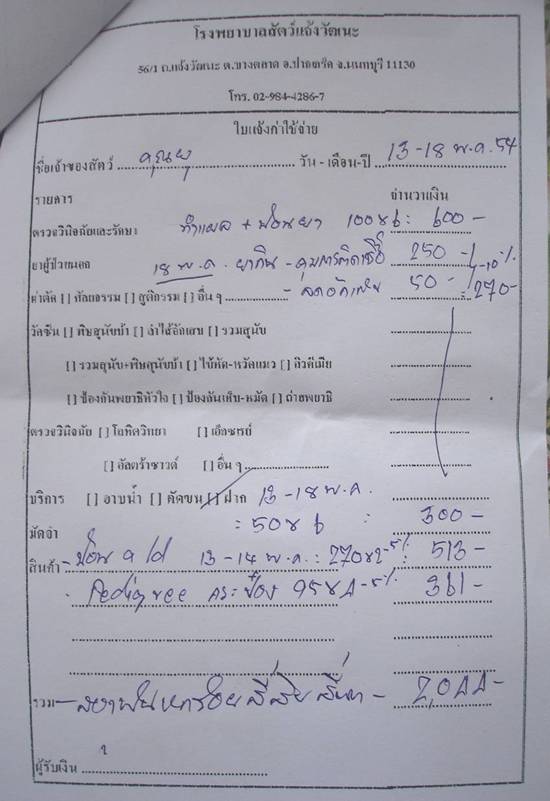 โรงพยาบาลสัตว์แจ้งวัฒนะ
56/1 ถ.แจ้งวัฒนะ ต.บางตลาด อ.ปากเกร็ด จ.นนทบุรี 11130
โทร. 02-984-4286-7
ใบแจ้งค่าใช้จ่าย
ชื่อเจ้าของสัตว์ วัน - เดือน - ปี 13-18 พ.ค. 54
รายการ จำนวนเงิน
ตรวจวินิจฉัยและรักษา ทำแผล + ป้อนยา 100x6 : 600-
ยาผู้ป่วยนอก 18 พ.ค. ยากิน - คุมการติดเชื้อ 250 -
ผ่าตัด [ ] ศัลยกรรม [ ] สูติกรรม [ ] อื่น ๆ - ลดอักเสบ 50 - -10% 270-
วัคซีน [ ] พิษสุนัขบ้า [ ] ลำไส้อักเสบ [ ] รวมสุนัข
[ ] รวมสุนัข+พิษสุนัขบ้า [ ] ไข้หัด-หวัดแมว [ ] ลิวคีเมีย
[ ] ป้องกันพยาธิหัวใจ [ ] ป้องกันเห็บ-หมัด [ ] ถ่ายพยาธิ
ตรวจวินิจฉัย [ ] โลหิตวิทยา [ ] เอ็กซเรย์
[ ] อัลตร้าซาวด์ [ ] อื่น ๆ
บริการ [ ] อาบน้ำ [ ] ตัดขน [ ] ฝาก 13-18 พ.ค.
มัดจำ : 50x6 : 300-
สินค้า - ป้อน a/d 13-14 พ.ค. : 270x2-5% : 513-
Pedigree กระป๋อง 95x4-5% 361-
รวม - สองพันหกร้อยสี่สิบสี่บาท - 2,044-
ผู้รับเงิน